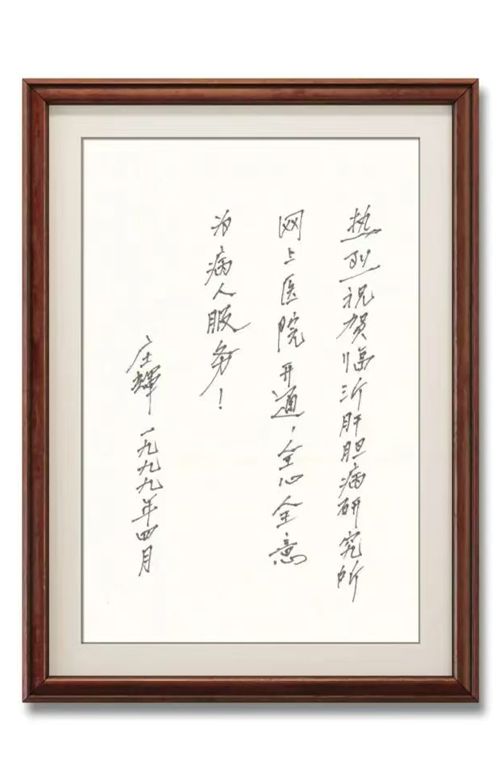 热烈祝贺临沂肝胆病研究所
网上医院开通，全心全意
为病人服务！
庄辉 一九九九年四月